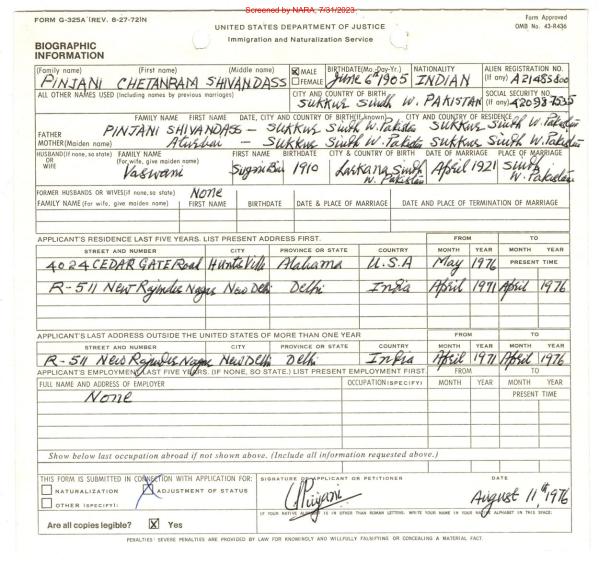 Screened by NARA, 7/31/2023
FORM G-325A (REV. 8-27-72)N
UNITED STATES DEPARTMENT OF JUSTICE
Form Approved
OMB No. 43-R436
Immigration and Naturalization Service
BIOGRAPHIC
INFORMATION
(Family name) (First name) (Middle name) ☒ MALE ☐ FEMALE BIRTHDATE (Mo.-Day-Yr.) NATIONALITY ALIEN REGISTRATION NO. (If any)
PINJANI CHETANRAM SHIVANDASS June 6th 1905 INDIAN A21485800
ALL OTHER NAMES USED (Including names by previous marriages) CITY AND COUNTRY OF BIRTH SOCIAL SECURITY NO. (If any)
SUKKUR Sindh W. PAKISTAN
FAMILY NAME FIRST NAME DATE, CITY AND COUNTRY OF BIRTH (If known) CITY AND COUNTRY OF RESIDENCE
FATHER PINJANI SHIVANDASS - SUKKUR Sindh W. Pakistan SUKKUR Sindh W. Pakistan
MOTHER (Maiden name) - SUKKUR Sindh W. Pakistan SUKKUR Sindh W. Pakistan
HUSBAND (If none, so state) OR WIFE FAMILY NAME (For wife, give maiden name) FIRST NAME BIRTHDATE CITY & COUNTRY OF BIRTH DATE OF MARRIAGE PLACE OF MARRIAGE
Vaswani 1910 Larkana Sindh W. Pakistan April 1921 Sindh W. Pakistan
FORMER HUSBANDS OR WIVES (if none, so state) None
FAMILY NAME (For wife, give maiden name) FIRST NAME BIRTHDATE DATE & PLACE OF MARRIAGE DATE AND PLACE OF TERMINATION OF MARRIAGE
APPLICANT'S RESIDENCE LAST FIVE YEARS. LIST PRESENT ADDRESS FIRST. FROM TO
STREET AND NUMBER CITY PROVINCE OR STATE COUNTRY MONTH YEAR MONTH YEAR
4024 CEDAR GATE Road Huntsville Alabama U.S.A May 1976 PRESENT TIME
R-511 New Rajinder Nagar New Delhi Delhi India April 1971 April 1976
APPLICANT'S LAST ADDRESS OUTSIDE THE UNITED STATES OF MORE THAN ONE YEAR FROM TO
STREET AND NUMBER CITY PROVINCE OR STATE COUNTRY MONTH YEAR MONTH YEAR
R-511 New Rajinder Nagar New Delhi Delhi India April 1971 April 1976
APPLICANT'S EMPLOYMENT LAST FIVE YEARS. (IF NONE, SO STATE.) LIST PRESENT EMPLOYMENT FIRST. FROM TO
FULL NAME AND ADDRESS OF EMPLOYER OCCUPATION (SPECIFY) MONTH YEAR MONTH YEAR
None PRESENT TIME
Show below last occupation abroad if not shown above. (Include all information requested above.)
THIS FORM IS SUBMITTED IN CONNECTION WITH APPLICATION FOR: SIGNATURE OF APPLICANT OR PETITIONER DATE
☐ NATURALIZATION ☒ ADJUSTMENT OF STATUS
☐ OTHER (SPECIFY): August 11th, 1976
IF YOUR NATIVE ALPHABET IS IN OTHER THAN ROMAN LETTERS, WRITE YOUR NAME IN YOUR NATIVE ALPHABET IN THIS SPACE:
Are all copies legible? ☒ Yes
PENALTIES: SEVERE PENALTIES ARE PROVIDED BY LAW FOR KNOWINGLY AND WILLFULLY FALSIFYING OR CONCEALING A MATERIAL FACT.